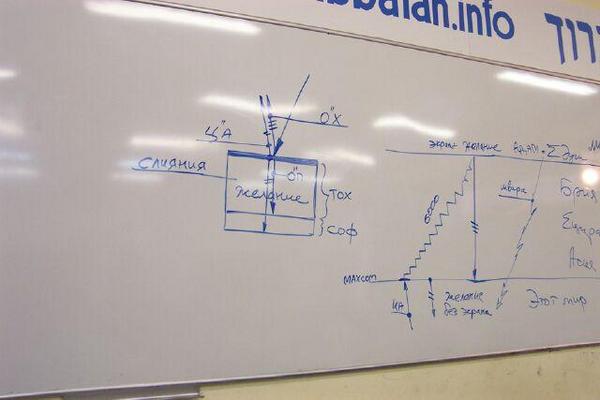 bbalah.info
דרוך
О"Х
Ц"А
СЛИЯНИЯ
О"П
желание
ТОХ
СОФ
экран желание АДАМ
Брия
Ецира
Асия
МАХСОМ
желание
без экрана
Этот мир